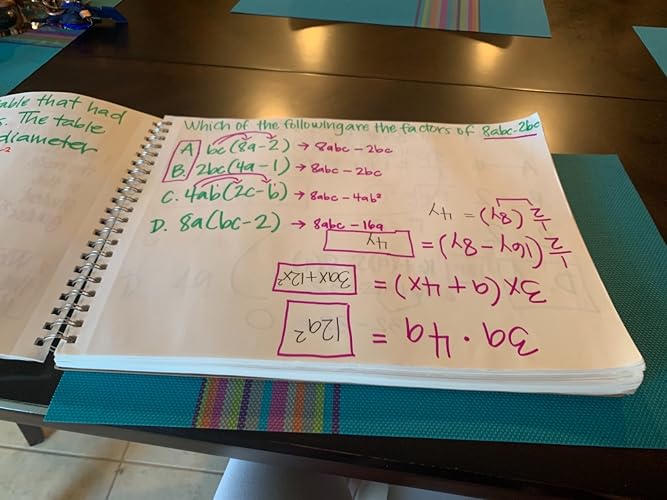 able that had
s. The table
diameter
Which of the following are the factors of 8abc-2bc
A bc(8a-2) → 8abc-2bc
B. 2bc(4a-1) → 8abc-2bc
C. 4ab(2c-b) → 8abc-4ab²
D. 8a(bc-2) → 8abc-16a
3a · 4a = 12a²
3x(a+4x) = 3ax+12x²
½(16y-8y) = 4y
½(8y) = 4y